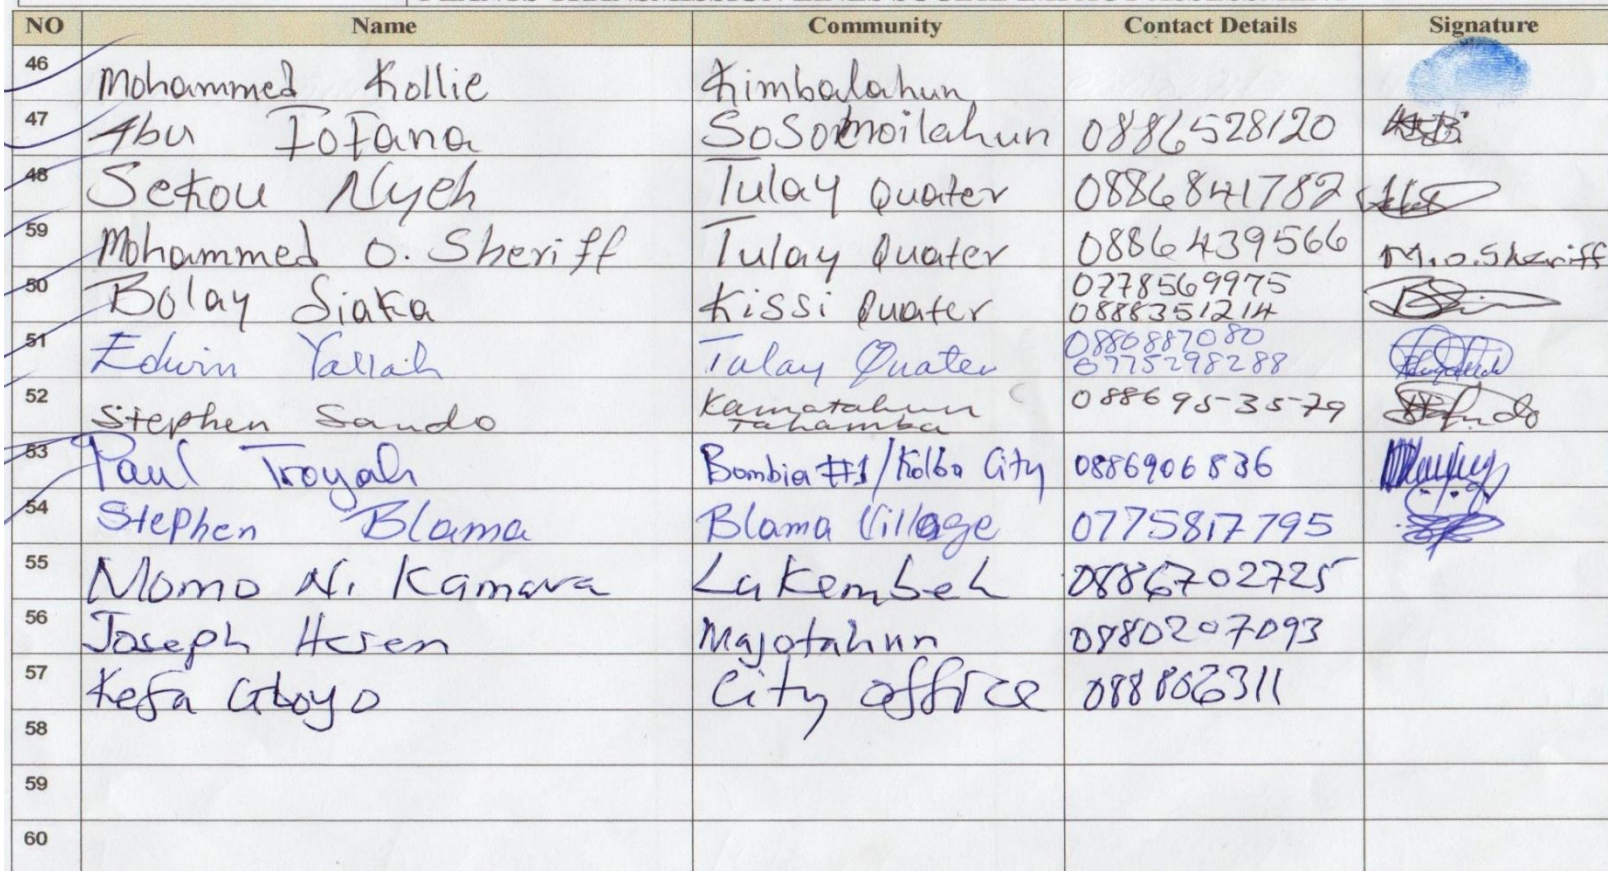 NO Name Community Contact Details Signature
46 Mohammed Kollie Kimbalahun
47 Abu FoFana 0886528120
48 Sekou Nyeh Tulay Quater 0886841782
59 Mohammed O. Sheriff Tulay Quater 0886439566 M.O.Sheriff
50 Bolay Siaka Kissi Quater 0778569975
0888351214
51 Edwin Yallah Tulay Quater 0886887080
0775298288
52 Stephen Sando Kamatahun 088695-35-79
Tahamba
53 Paul Troyah Bombia #1/Kolba City 0886906836
54 Stephen Blama Blama Village 0775817795
55 Momo N. Kamara Lukembeh 0886702725
56 Joseph Majotahun 0880207093
57 Kefa Gboyo City office
58
59
60